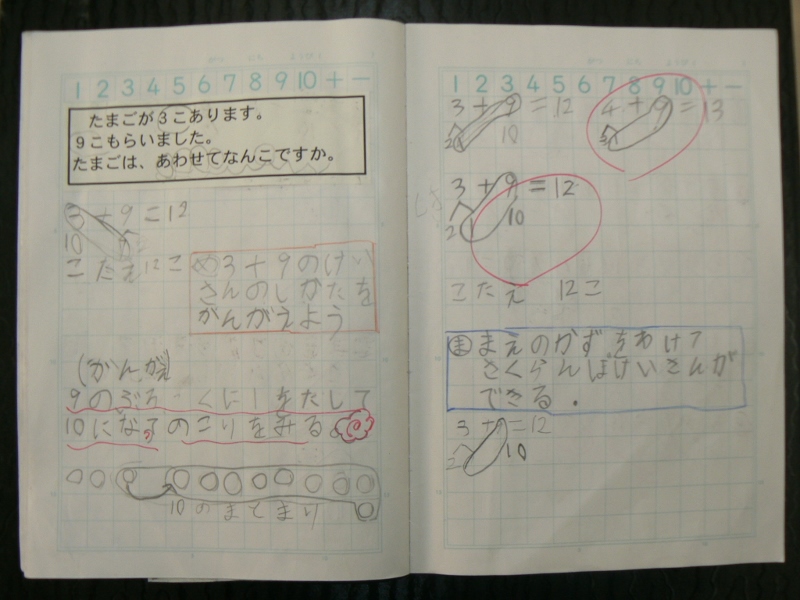 1 2 3 4 5 6 7 8 9 10 + −
たまごが3こあります。
9こもらいました。
たまごは、あわせてなんこですか。
3+9=12
10
こたえ12こ
め 3+9のけい
さんのしかたを
かんがえよう
(かんがえ)
9のぶろっくに1をたして
10になってのこりをみる。
10のまとまり
1 2 3 4 5 6 7 8 9 10 + −
3+9=12
2 1 10
4+9=13
3
3+9=12
2 1 10
こたえ 12こ
ま まえのかずをわけて
さくらんぼけいさんが
できる.
3+9=12
2 1 10